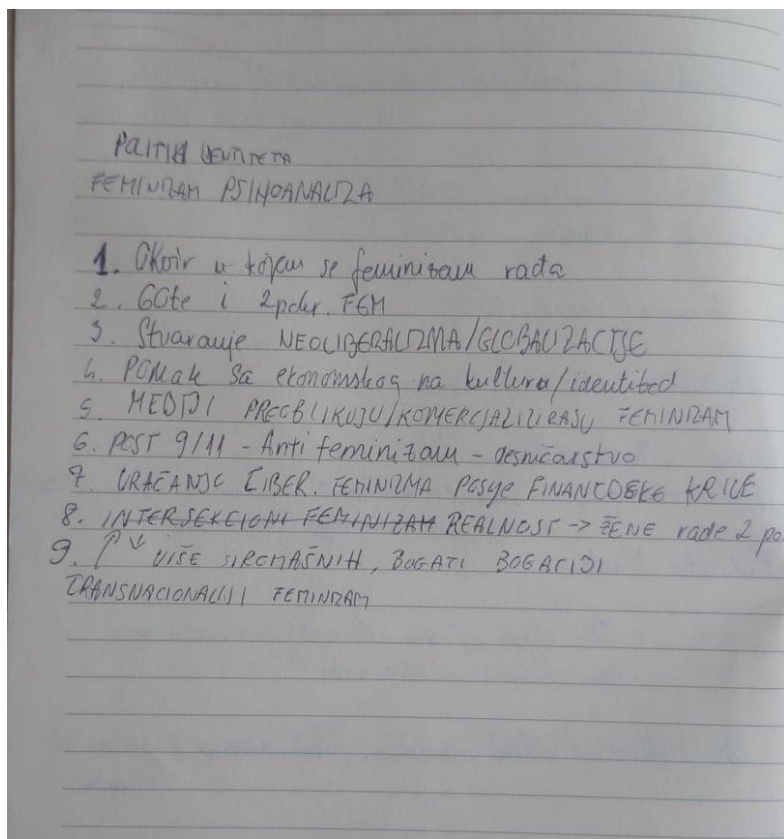 POLITIKA IDENTITETA
FEMINIZAM PSIHOANALIZA
1. Okvir u kojem se feminizam rađa
2. 60te i 2 FEM
3. Stvaranje NEOLIBERALIZMA/GLOBALIZACIJE
4. POMAK sa ekonomskog na kultura/identitet
5. MEDIJI PREOBLIKUJU/KOMERCIJALIZIRAJU FEMINIZAM
6. POST 9/11 - Anti feminizam - desničarstvo
7. VRAĆANJE LIBER. FEMINIZMA POSLJE FINANCIJSKE KRIZE
8. INTERSEKCIONI FEMINIZAM REALNOST → ŽENE rade 2 po
9. ↑ ↓ VIŠE SIROMAŠNIH, BOGATI BOGATIJI
TRANSNACIONALNI FEMINIZAM